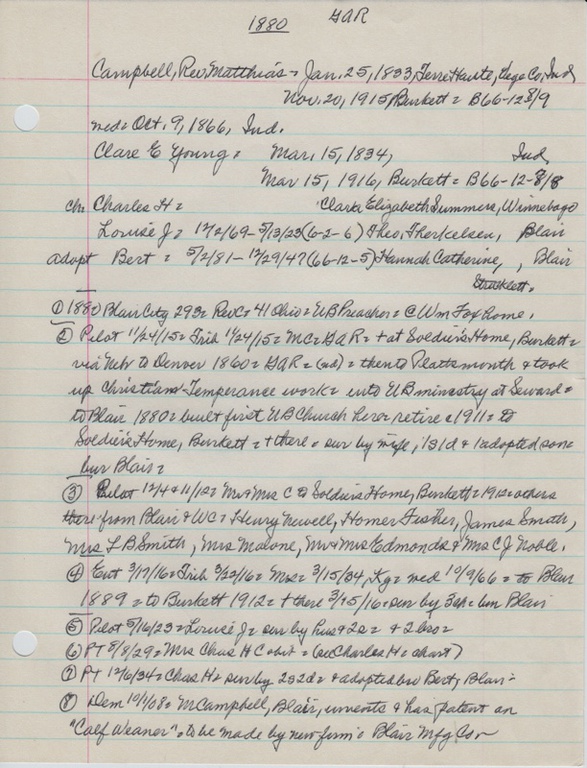 1880 GAR
Campbell, Rev. Matthias = Jan. 25, 1833, Terre Haute, Vego Co, Ind,
Nov. 20, 1915, Burkett = B66-12-8/9
wed = Oct. 9, 1866, Ind.
Clare E Young = Mar. 15, 1834, Ind,
Mar 15, 1916, Burkett = B66-12-8/8
ch. Charles H = Clark Elizabeth Summers, Winnebago
Louise J = 12/2/69-5/13/23 (6-2-6) Theo. Therkelsen, Blair
adopt Bert = 5/2/81-12/29/47 (66-12-5) Hannah Catherine, , Blair
① 1880 Blair City 293 = Rev C = 41 Ohio = UB Preacher = @ Wm Fox home.
② Pilot 11/24/15 = Trib 11/24/15 = MC = GAR = + at Soldier's Home, Burkett =
via Nebr to Denver 1860 = GAR = (nd) = then to Plattsmouth & took
up Christian Temperance work = into UB ministry at Seward =
to Blair 1880 = built first UB Church here = retire c 1911 = to
Soldier's Home, Burkett = + there = sur by wife, 1s1d & 1 adopted son =
bur Blair =
③ Pilot 12/4 & 11/12 = Mr & Mrs C @ Soldier's Home, Burkett = 1912 = others
there from Blair & WC = Henry Newell, Homer Fisher, James Smith,
Mrs L B Smith, Mrs Malone, Mr & Mrs Edmonds & Mrs C J Noble.
④ Ent 3/17/16 = Trib 3/23/16 = Mrs = 3/15/34, Ky = wed 10/9/66 = to Blair
1889 = to Burkett 1912 = + there 3/15/16 = sur by 3 ch = bur Blair
⑤ Pilot 5/16/23 = Louise J = sur by hus & 2s = & 2 bro =
⑥ PT 5/8/29 = Mrs Chas H C obit = (see Charles H = chart)
⑦ PT 12/6/34 = Chas H = sur by 2s2d = & adopted bro Bert, Blair =
⑧ Dem 10/1/08 = M Campbell, Blair, invents & has patent on
"Calf Weaner" = to be made by new firm = Blair Mfg Co =